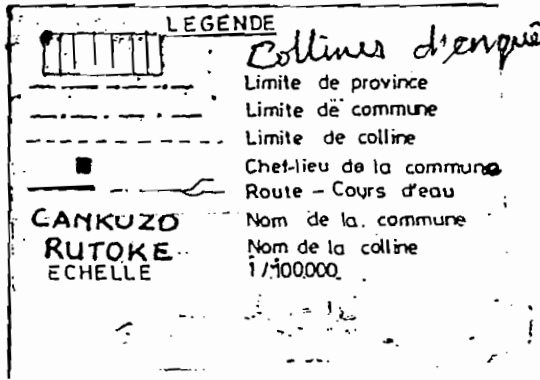 LEGENDE
Collines d'enquê
Limite de province
Limite de commune
Limite de colline
Chef-lieu de la commune
Route - Cours d'eau
CANKUZO Nom de la commune
RUTOKE Nom de la colline
ECHELLE 1/100.000